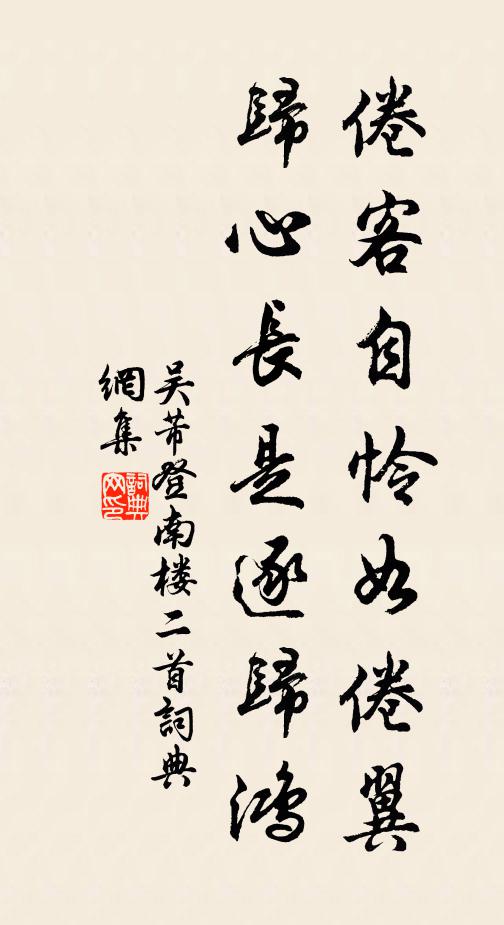 倦客自怜如倦翼
歸心長是逐歸鴻
吴芾登南楼二首詞典
網集
詞典
网印